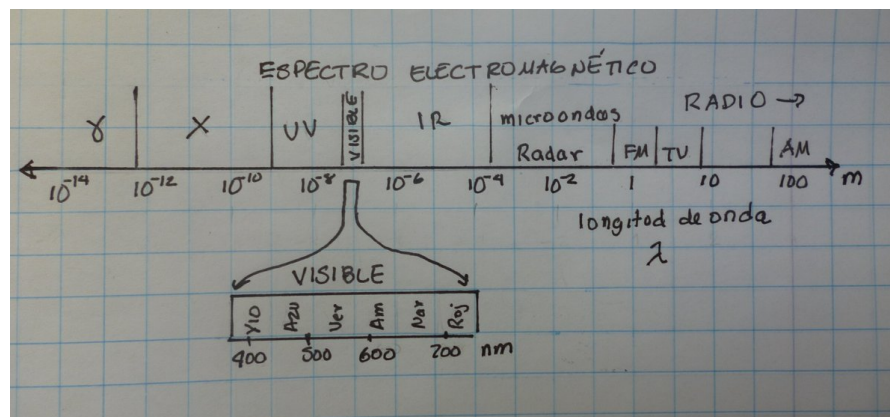 ESPECTRO ELECTROMAGNÉTICO
γ X UV VISIBLE IR microondas RADIO →
Radar FM TV AM
10⁻¹⁴ 10⁻¹² 10⁻¹⁰ 10⁻⁸ 10⁻⁶ 10⁻⁴ 10⁻² 1 10 100 m
longitud de onda
λ
VISIBLE
Vio Azu Ver Am Nar Roj
400 500 600 700 nm